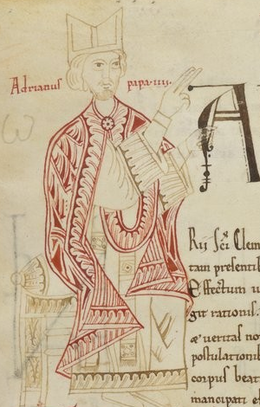 Adrianus papa·iiii·
A
Rii sc̄i Clem
tam presenti
Effectum u
git rationis.
ue ueritas no
postulationib
corpus beat
mancipati e